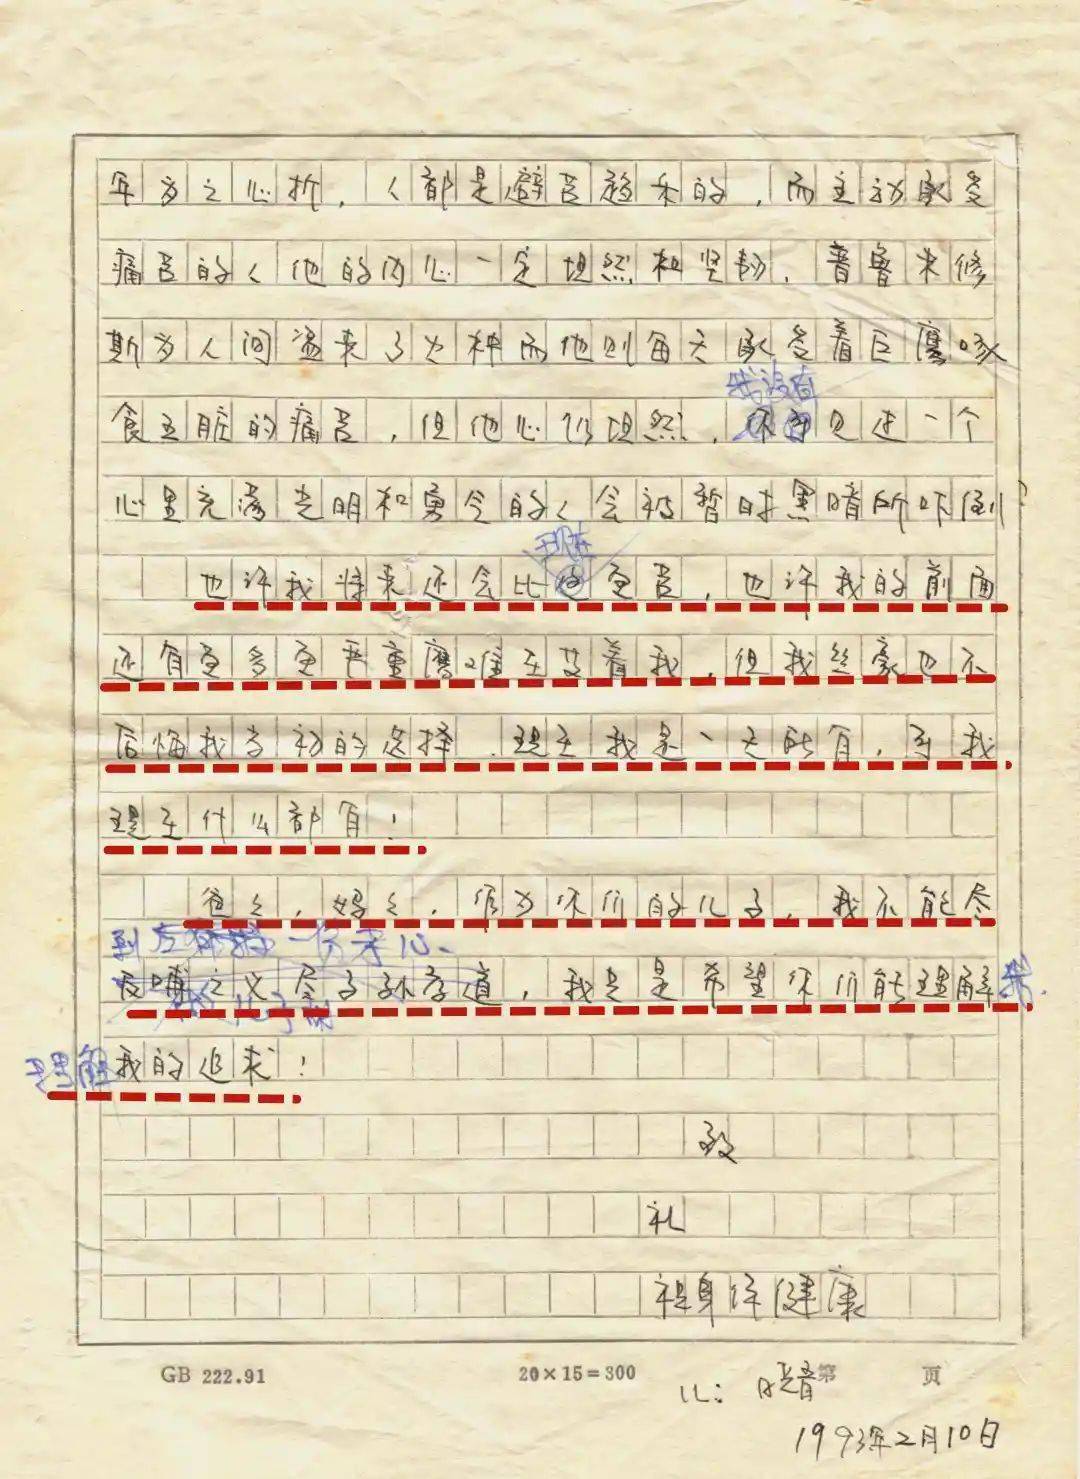 年为之心折，人都是避苦趋乐的，而主动承受
痛苦的人他的内心一定坦然和坚韧，普鲁米修
斯为人间盗来了火种而他则每天承受着巨鹰啄
我没有
食五脏的痛苦，但他心仍坦然，你可见过一个
心里充满光明和勇令的人会被暂时黑暗所吓倒？
现在
也许我将来还会比这更苦，也许我的前面
还有更多更严重磨难在等着我，但我丝毫也不
后悔我当初的选择，现在我是一无所有，可我
现在什么都有！
爸爸，妈妈，作为你们的儿子，我不能尽
到 一份孝心、
反哺之义尽子孙孝道，我是希望你们能理解我.
理解我的追求！
致
礼
祝身体健康
GB 222.91 20×15=300 第 页
儿：晓音
1993年2月10日